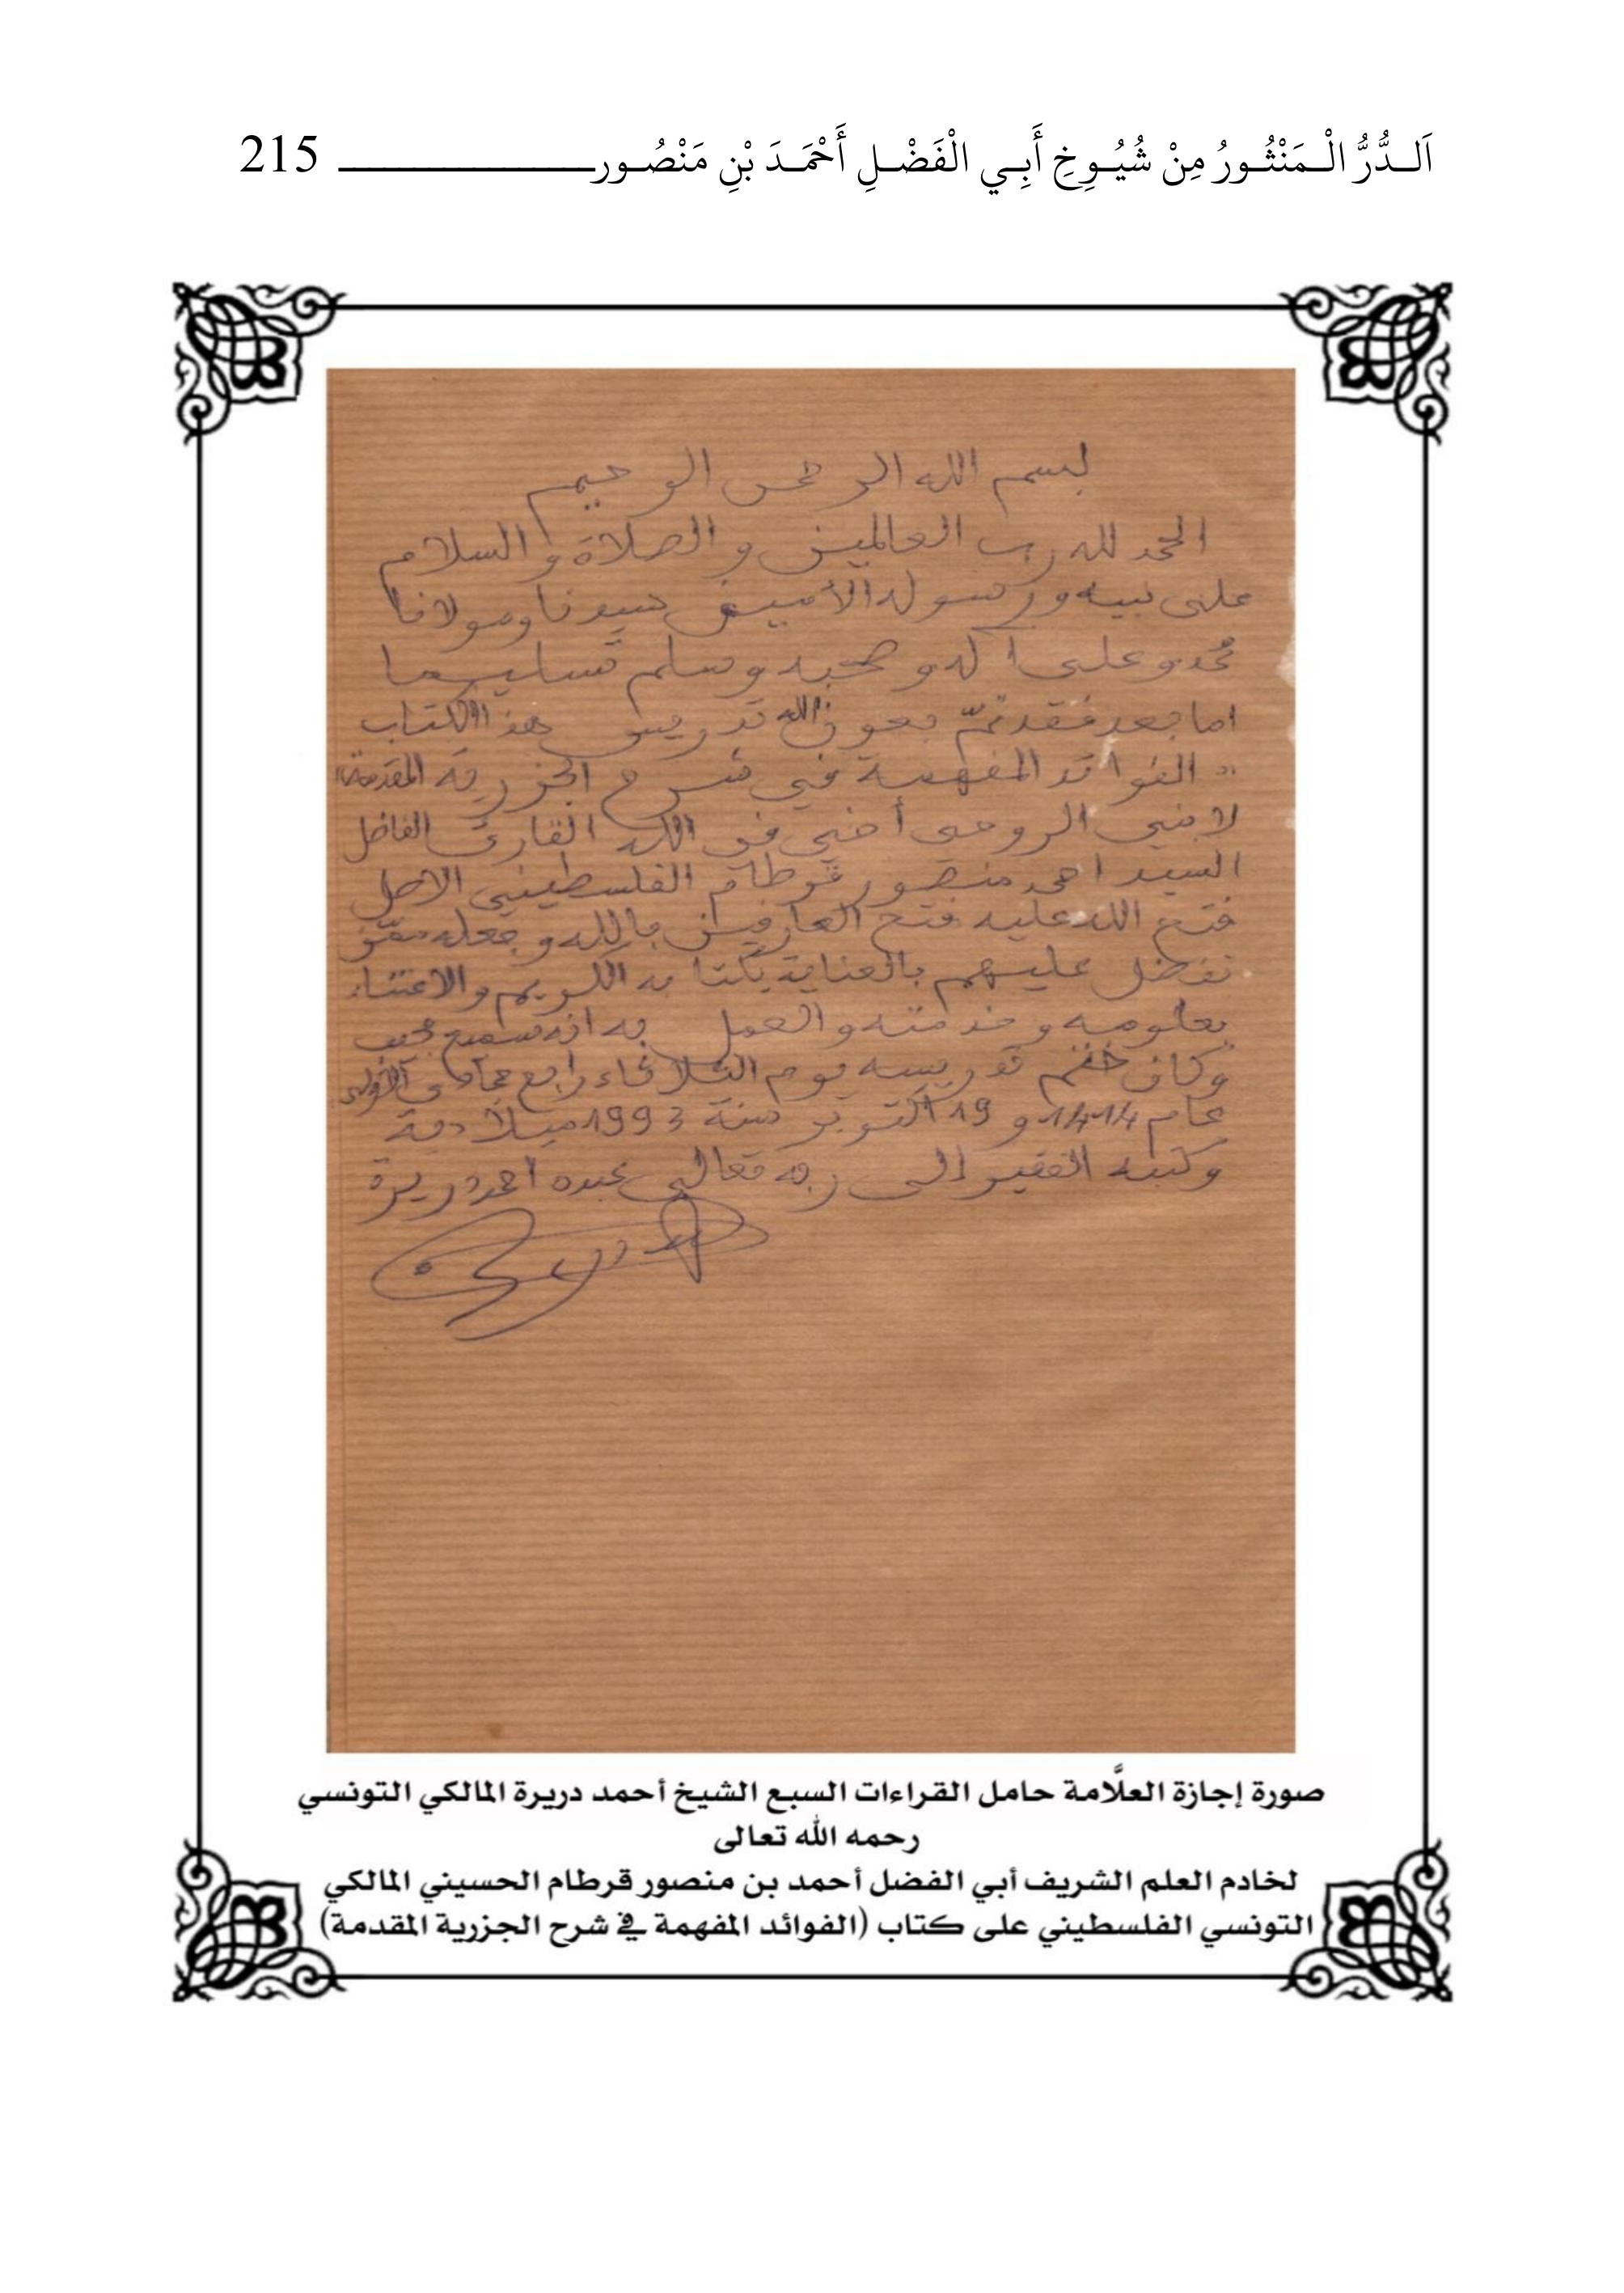 اَلــدُّرُّ الْــمَنْثُــورُ مِنْ شُيُــوخِ أَبِــي الْفَضْــلِ أَحْمَــدَ بْنِ مَنْصُــور 215
بسم الله الرحمن الرحيم
الحمد لله رب العالمين والصلاة والسلام
على نبيه ورسوله الأمين سيدنا ومولانا
محمد وعلى آله وصحبه وسلم تسليما
اما بعد فقد تمّ بعون الله تدريس هذا الكتاب
"الفوائد المفهمة في شرح الجزرية المقدمة"
لابني الروحي أخي في الله القارئ الفاضل
السيد احمد منصور قرطام الفلسطيني الاصل
فتح الله عليه فتح العارفين بالله وجعله ممّن
تفضل عليهم بالعناية بكتابه الكريم والاعتناء
بعلومه وخدمته والعمل به انه سميع مجيب
وكان ختم تدريسه يوم الثلاثاء رابع جمادى الأولى
عام 1414 و 19 اكتوبر سنة 1993 ميلادية
وكتبه الفقير الى ربه تعالى عبده احمد دريرة
صورة إجازة العلَّامة حامل القراءات السبع الشيخ أحمد دريرة المالكي التونسي
رحمه الله تعالى
لخادم العلم الشريف أبي الفضل أحمد بن منصور قرطام الحسيني المالكي
التونسي الفلسطيني على كتاب (الفوائد المفهمة في شرح الجزرية المقدمة)